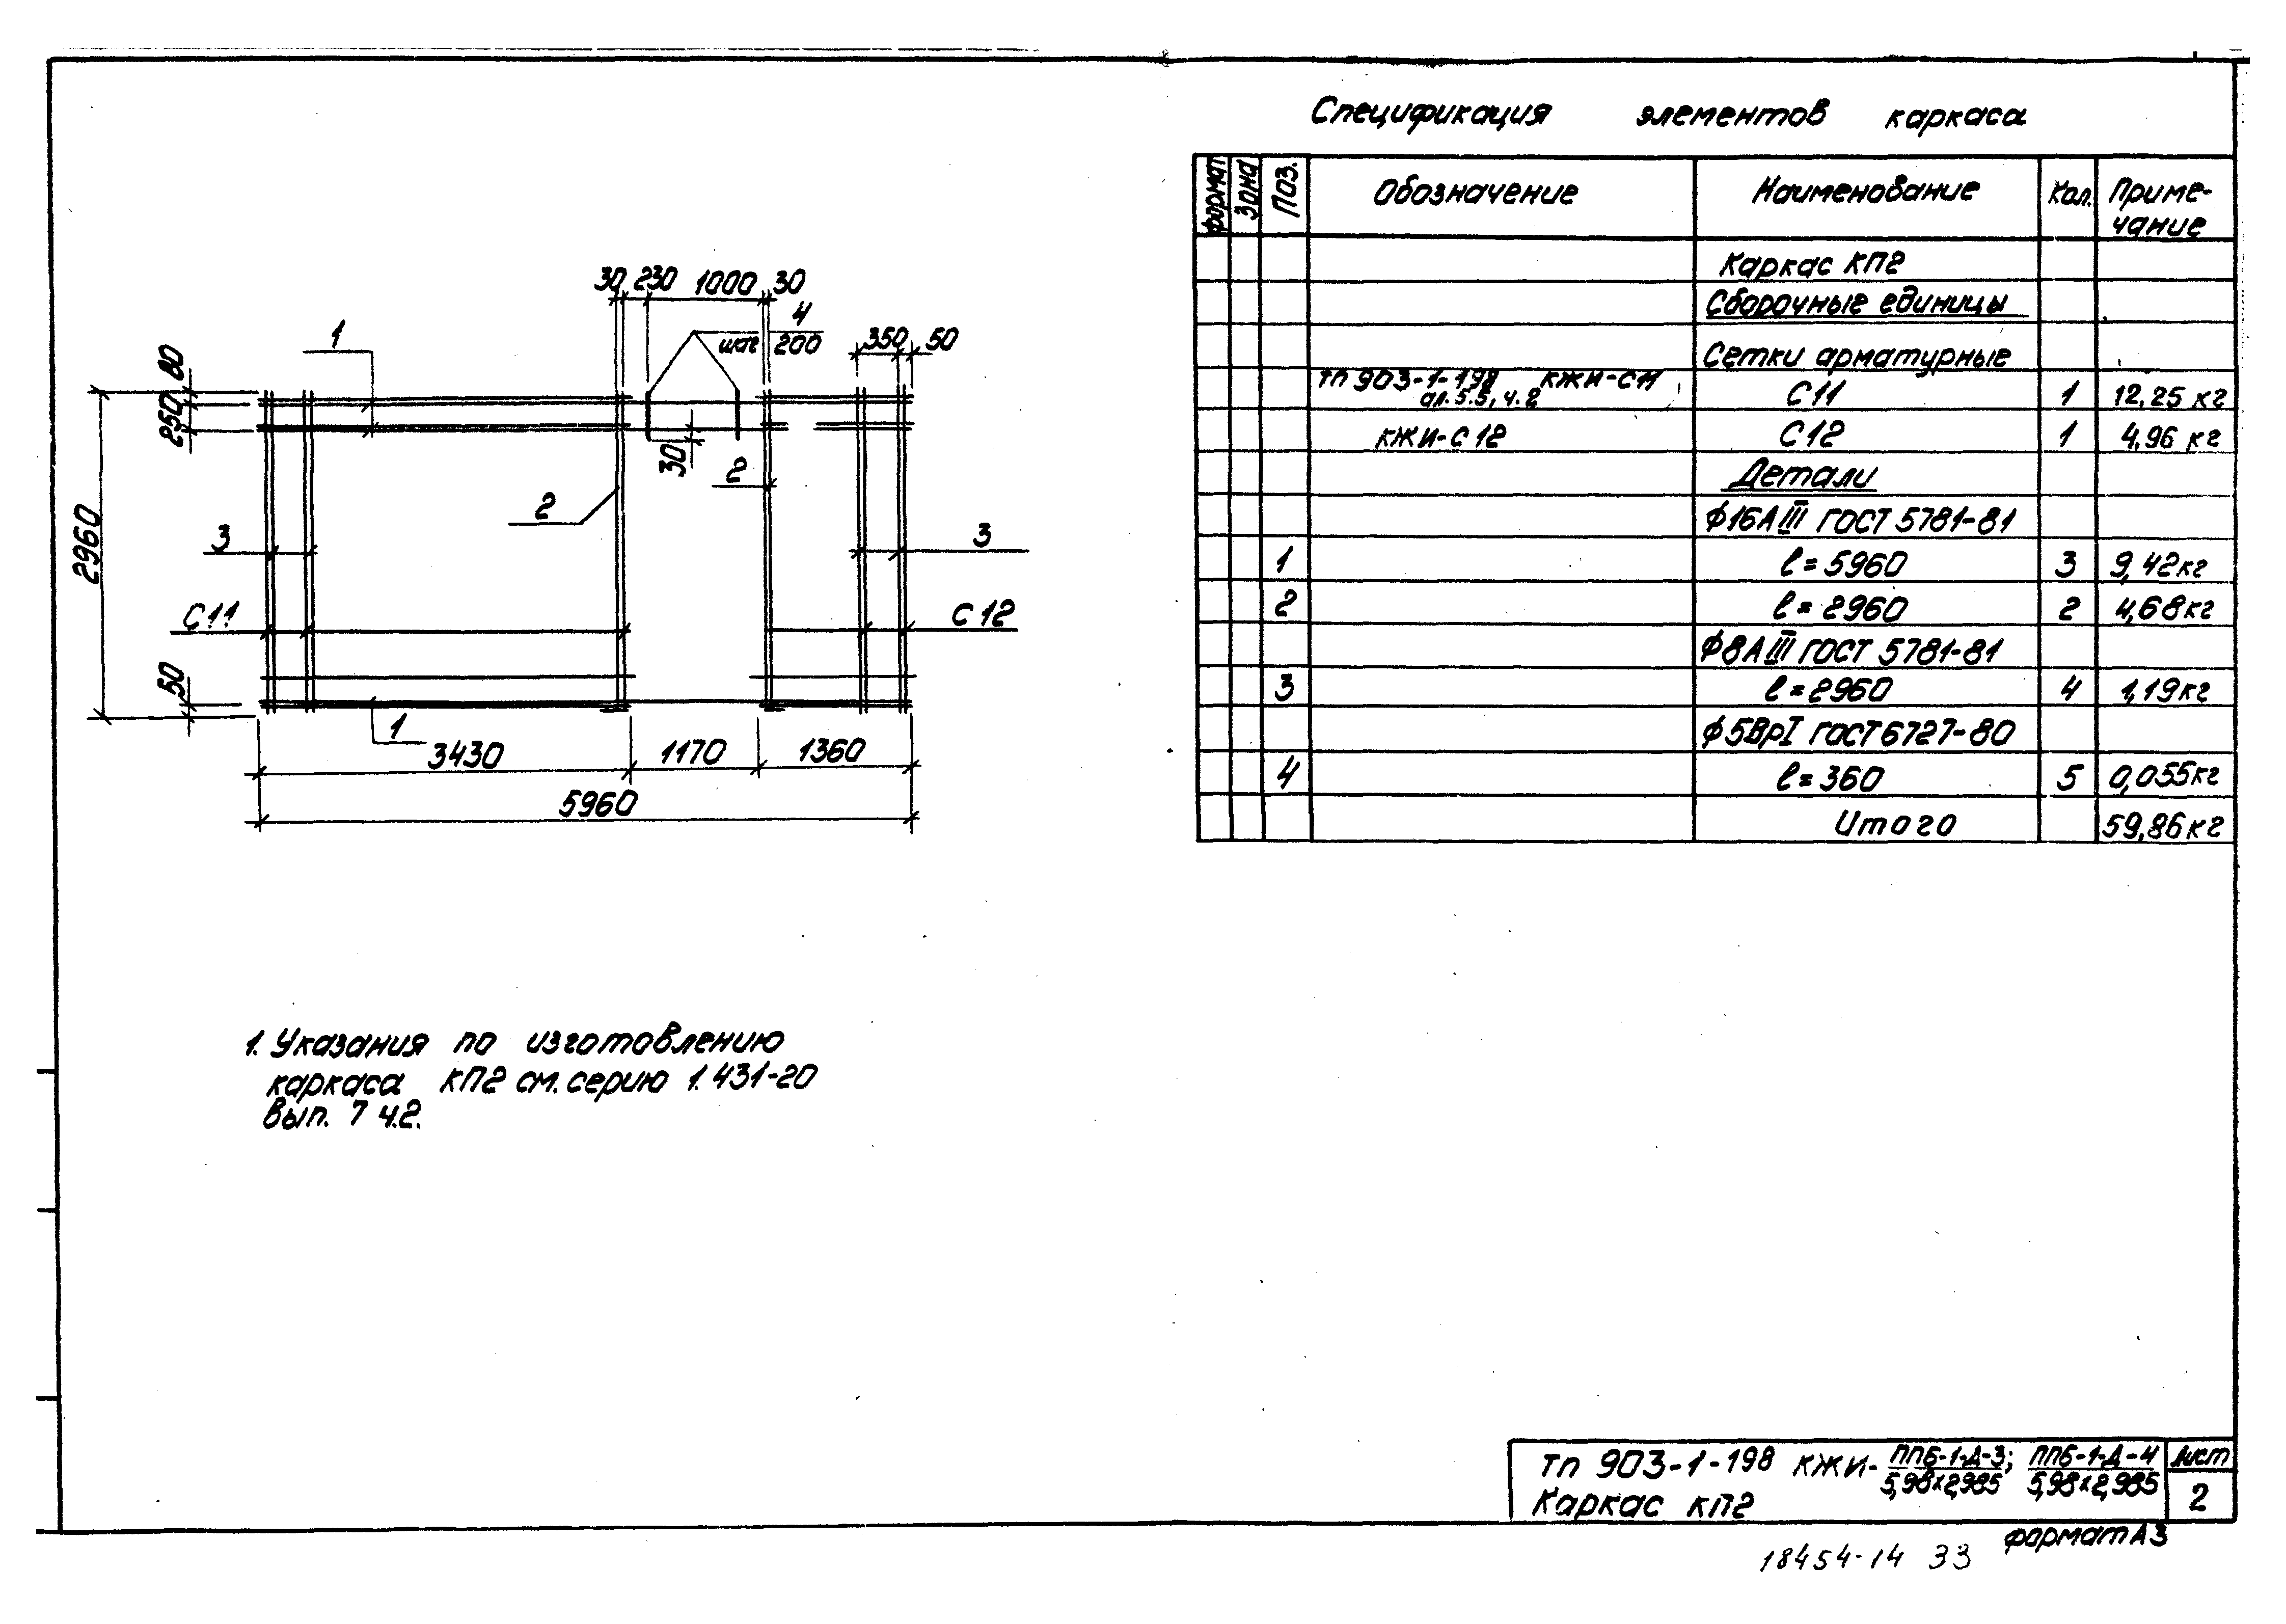 Спецификация элементов каркаса
Формат Зона Поз. Обозначение Наименование Кол. Приме-
чание
Каркас КП2
Сборочные единицы
Сетки арматурные
ТП 903-1-198 КЖИ-С11
ал. 5.5, ч. 2 С11 1 12,25 кг
КЖИ-С12 С12 1 4,96 кг
Детали
Ф16АIII ГОСТ 5781-81
1 ℓ=5960 3 9,42 кг
2 ℓ=2960 2 4,68 кг
Ф8АIII ГОСТ 5781-81
3 ℓ=2960 4 1,19 кг
Ф5ВрI ГОСТ 6727-80
4 ℓ=360 5 0,055 кг
Итого 59,86 кг
30 230 1000 30
4
шаг 200
1
350 50
80
250
30
2
2
2960
3 3
С11 С12
50
1
3430 1170 1360
5960
1. Указания по изготовлению
каркаса КП2 см. серию 1.431-20
вып. 7 ч.2.
ТП 903-1-198 КЖИ- ППБ-1-Д-3; ППБ-1-Д-4
5,98х2,985 5,98х2,985
Каркас КП2
Лист
2
Формат А3
18454-14 33